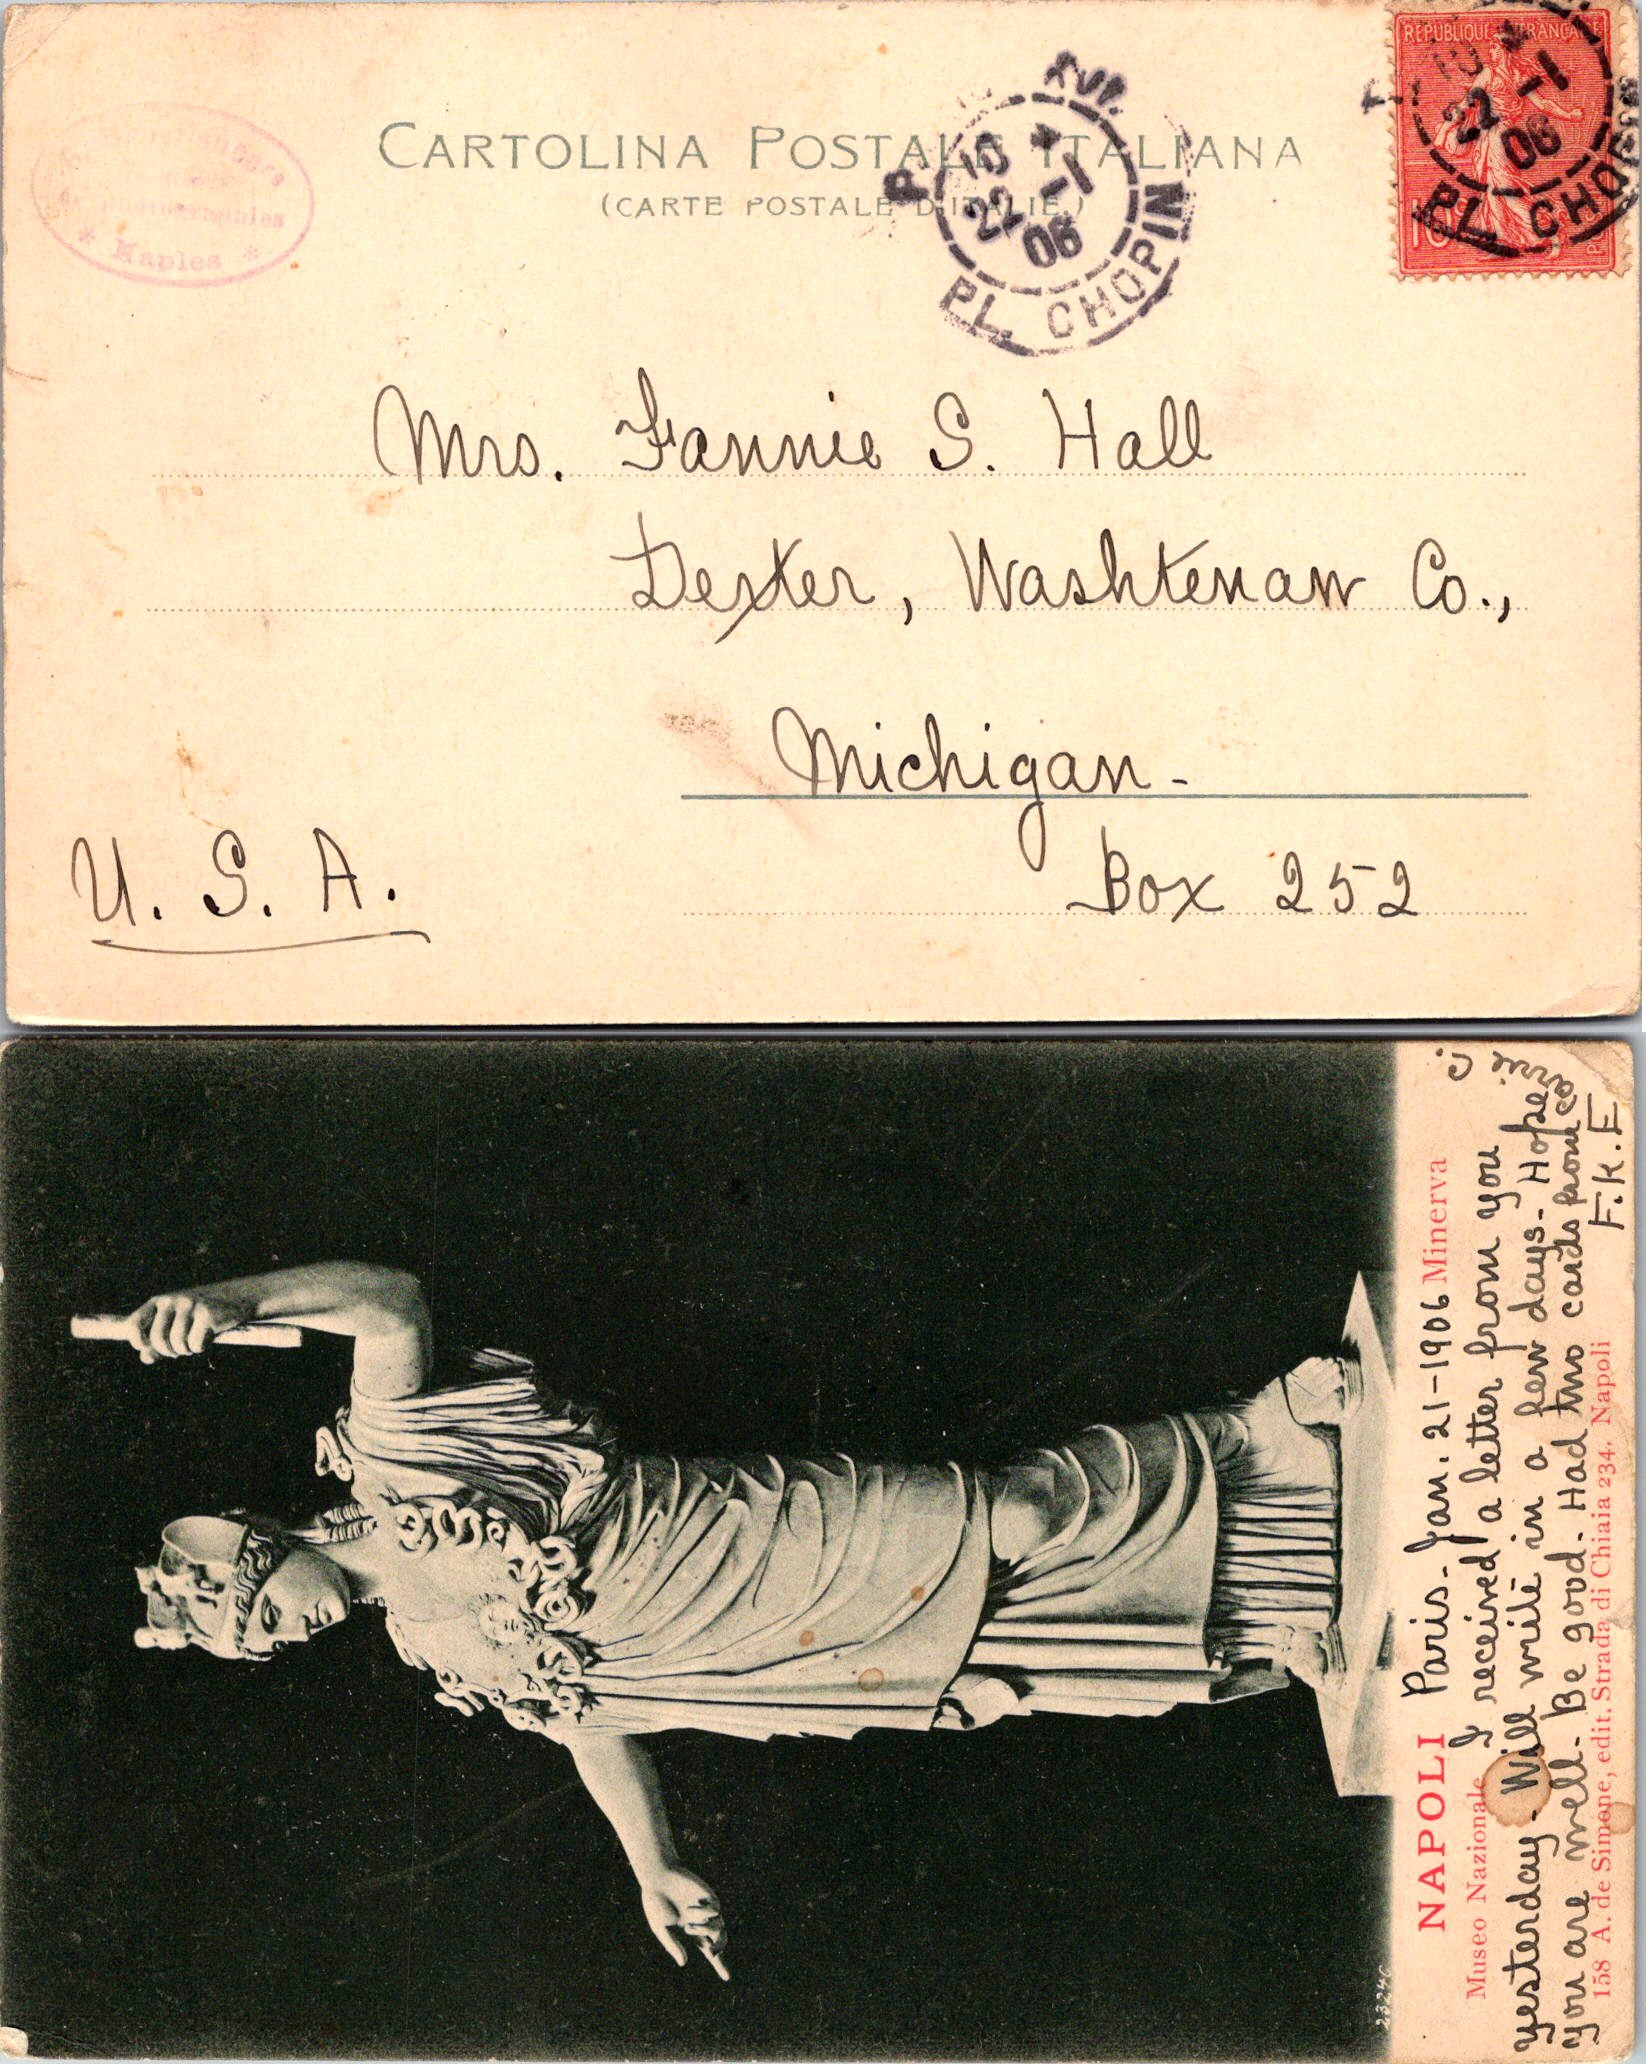 CARTOLINA POSTALE ITALIANA
(CARTE POSTALE D'ITALIE)
photographies
* Naples *
10
22 -1
06
PL. CHOPIN
REPUBLIQUE FRANCAISE
10
22 -1
06
PL. CHOPIN
Mrs. Fannie S. Hall
Dexter, Washtenaw Co.,
Michigan-
Box 252
U. S. A.
23246
NAPOLI Paris- Jan. 21-1906 Minerva
Museo Nazionale I received a letter from you
yesterday - Will write in a few days - Hope
you are well. Be good. Had two cards from Carrie C.
158 A. de Simone, edit. Strada di Chiaia 234. Napoli
F.K.E